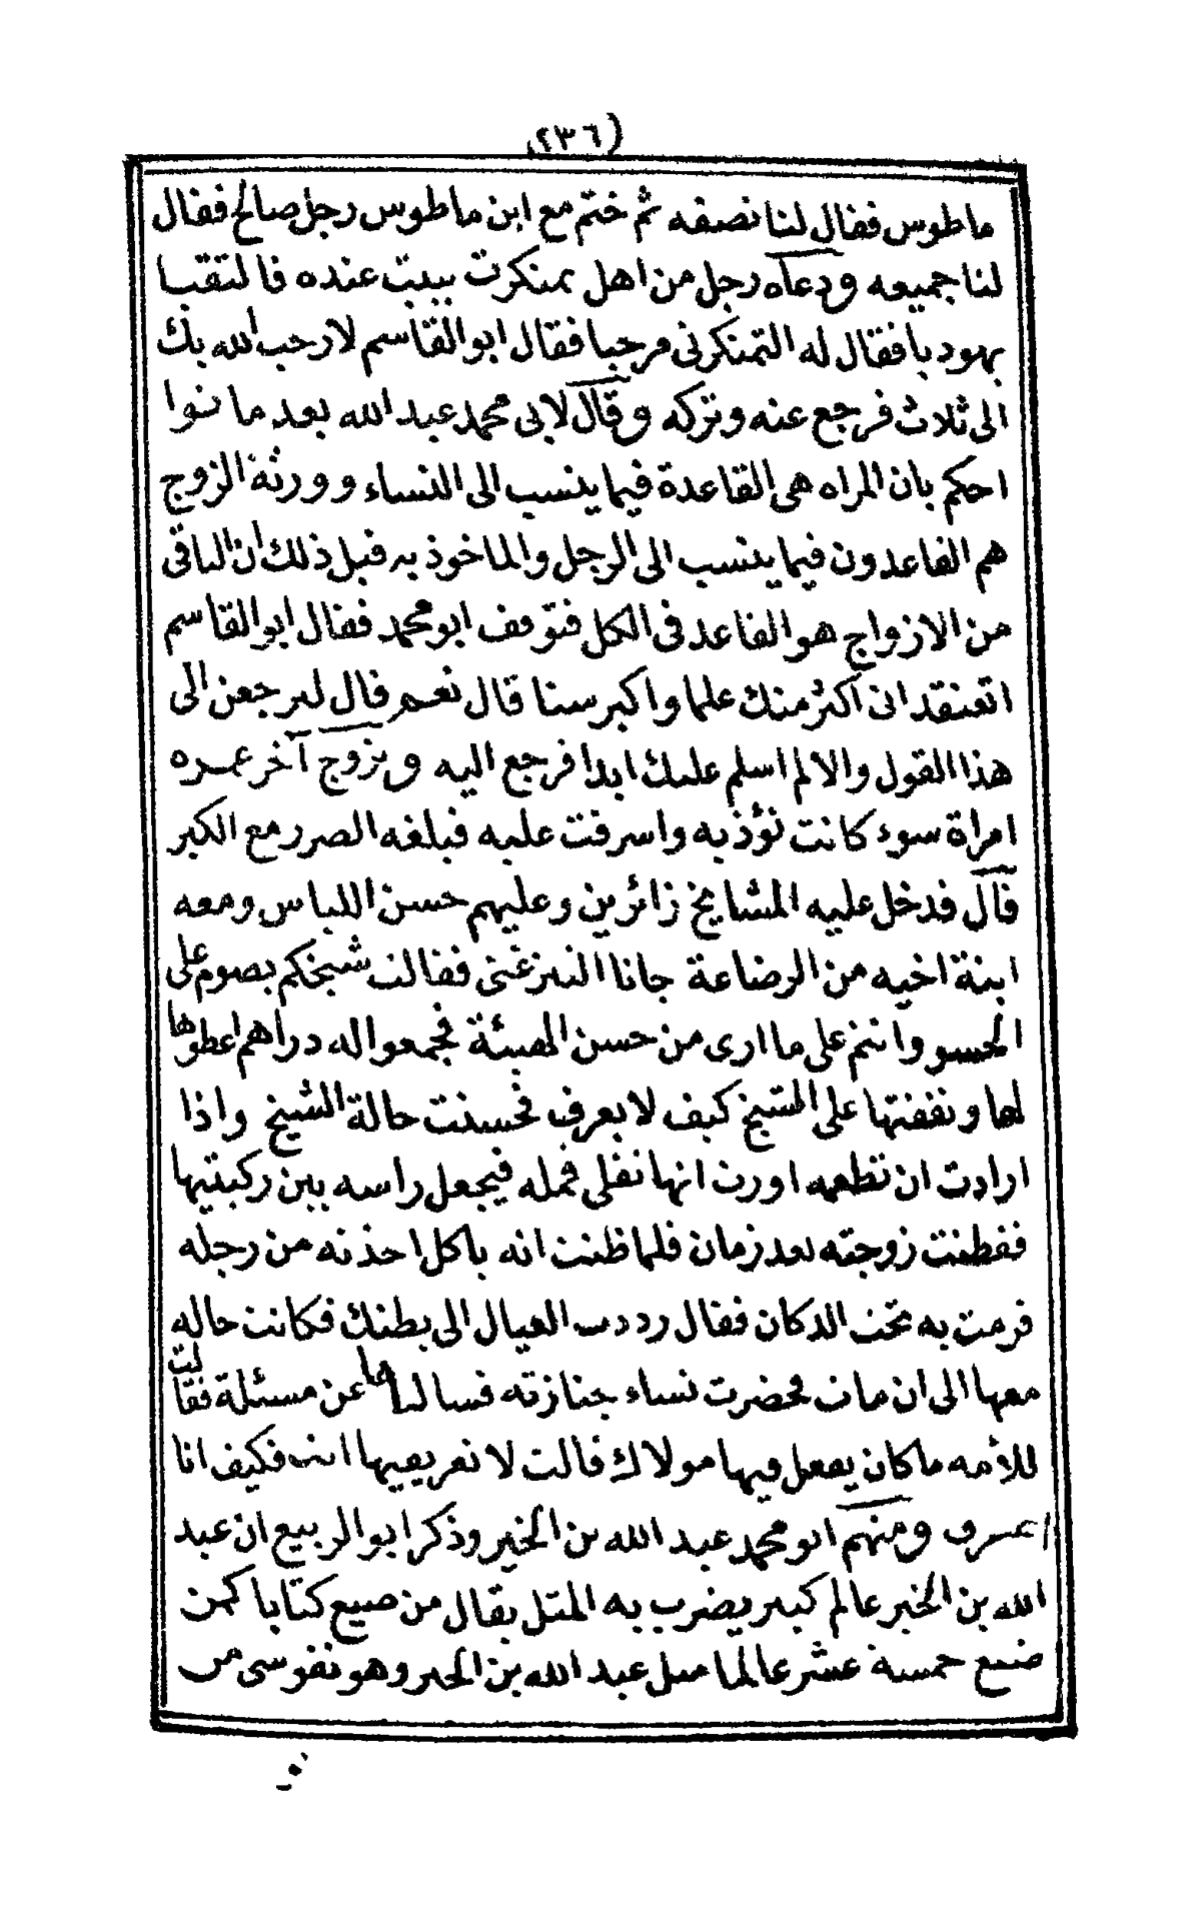 (٢٣٦)
ماطوس فقال لنا نصفه ثم ختم مع ابن ماطوس رجل صالح فقال
لنا جميعه ودعاه رجل من اهل تمنكرت يبيت عنده فالتقيا
يهوديا فقال له التمنكرتى مرحبا فقال ابو القاسم لا رحب الله بك
الى ثلاث فرجع عنه وتركه وقال لابى محمد عبد الله بعد ما نوا
احكم بان المراه هى القاعدة فيما ينسب الى النساء وورثة الزوج
هم القاعدون فيما ينسب الى الرجل والماخوذ به قبل ذلك ان الباقى
من الازواج هو القاعد فى الكل فتوقف ابو محمد فقال ابو القاسم
اتعتقد انى اكثر منك علما واكبر سنا قال نعم قال لترجعن الى
هذا القول والا لم اسلم عليك ابدا فرجع اليه وتزوج آخر عمره
امراة سوء كانت تؤذيه واسرفت عليه فبلغه الضرر مع الكبر
قال فدخل عليه المشايخ زائرين وعليهم حسن اللباس ومعه
ابنة اخيه من الرضاعة جانا النيزغتى فقالت شيخكم يصوم على
الحسو وانتم على ما ارى من حسن الهيئة فجمعوا له دراهم اعطوها
لها ونفقتها على الشيخ كيف لا يعرف فحسنت حالة الشيخ واذا
ارادت ان تطعمه اورت انها تفلى قمله فيجعل راسه بين ركبتيها
ففطنت زوجته بعد زمان فلما ظنت انه ياكل اخذته من رجله
فرمت به تحت الدكان فقال رددت العيال الى بطنك فكانت حاله
معها الى ان مات فحضرت نساء جنازته فسالنها عن مسئلة فقالت
للأمه ما كان يفعل فيها مولاك قالت لا تعرفيها انت فكيف انا
اعرف ومنهم ابو محمد عبد الله بن الخير وذكر ابو الربيع ان عبد
الله بن الخير عالم كبير يضرب به المثل يقال من ضيع كتابا كمن
ضيع خمسة عشر عالما مثل عبد الله بن الخير وهو نفوسى من